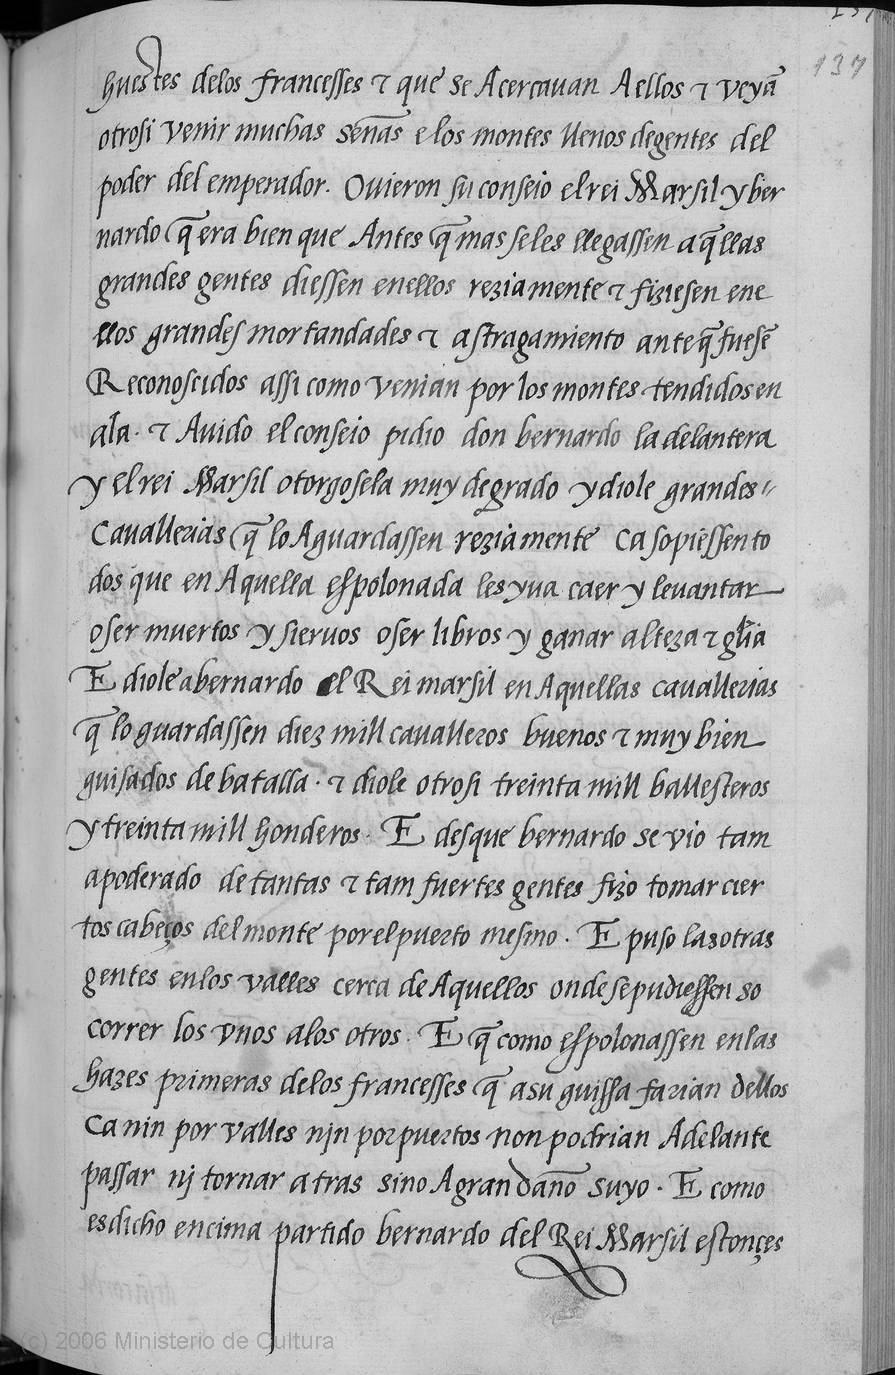 137
huestes delos francesses ⁊ que se Acercauan Aellos ⁊ veyā
otrosi venir muchas señas e los montes llenos degentes del
poder del emperador. Ouieron su conseio el rei Marsil y ber
nardo q̃ era bien que Antes q̃ mas seles llegassen a q̃llas
grandes gentes diessen enellos reziamente ⁊ fiziesen ene
llos grandes mortandades ⁊ astragamiento ante q̃ fuesē
Reconoscidos assi como venian por los montes tendidos en
ala. ⁊ Auido el conseio pidio don bernardo la delantera
y el rei Marsil otorgosela muy degrado y diole grandes
Cauallerias q̃ lo Aguardassen reziamente Ca sopiessen to
dos que en Aquella espolonada les yua caer y leuantar
o ser muertos y sieruos o ser libros y ganar alteza ⁊ gl̃ia
E diole abernardo el Rei marsil en Aquellas cauallerias
q̃ lo guardassen diez mill caualleros buenos ⁊ muy bien
guisados de batalla. ⁊ diole otrosi treinta mill ballesteros
y treinta mill honderos. E desque bernardo se vio tam
apoderado de tantas ⁊ tam fuertes gentes fizo tomar cier
tos cabeços del monte por el puerto mesmo. E puso las otras
gentes en los valles cerca de Aquellos onde se pudiessen so
correr los vnos a los otros. E q̃ como espolonassen en las
hazes primeras de los francesses q̃ a su guissa farian dellos
Ca nin por valles njn por puertos non podrian Adelante
passar nj tornar atras sino A gran daño suyo. E como
es dicho encima partido bernardo del Rei Marsil estonçes
(c) 2006 Ministerio de Cultura